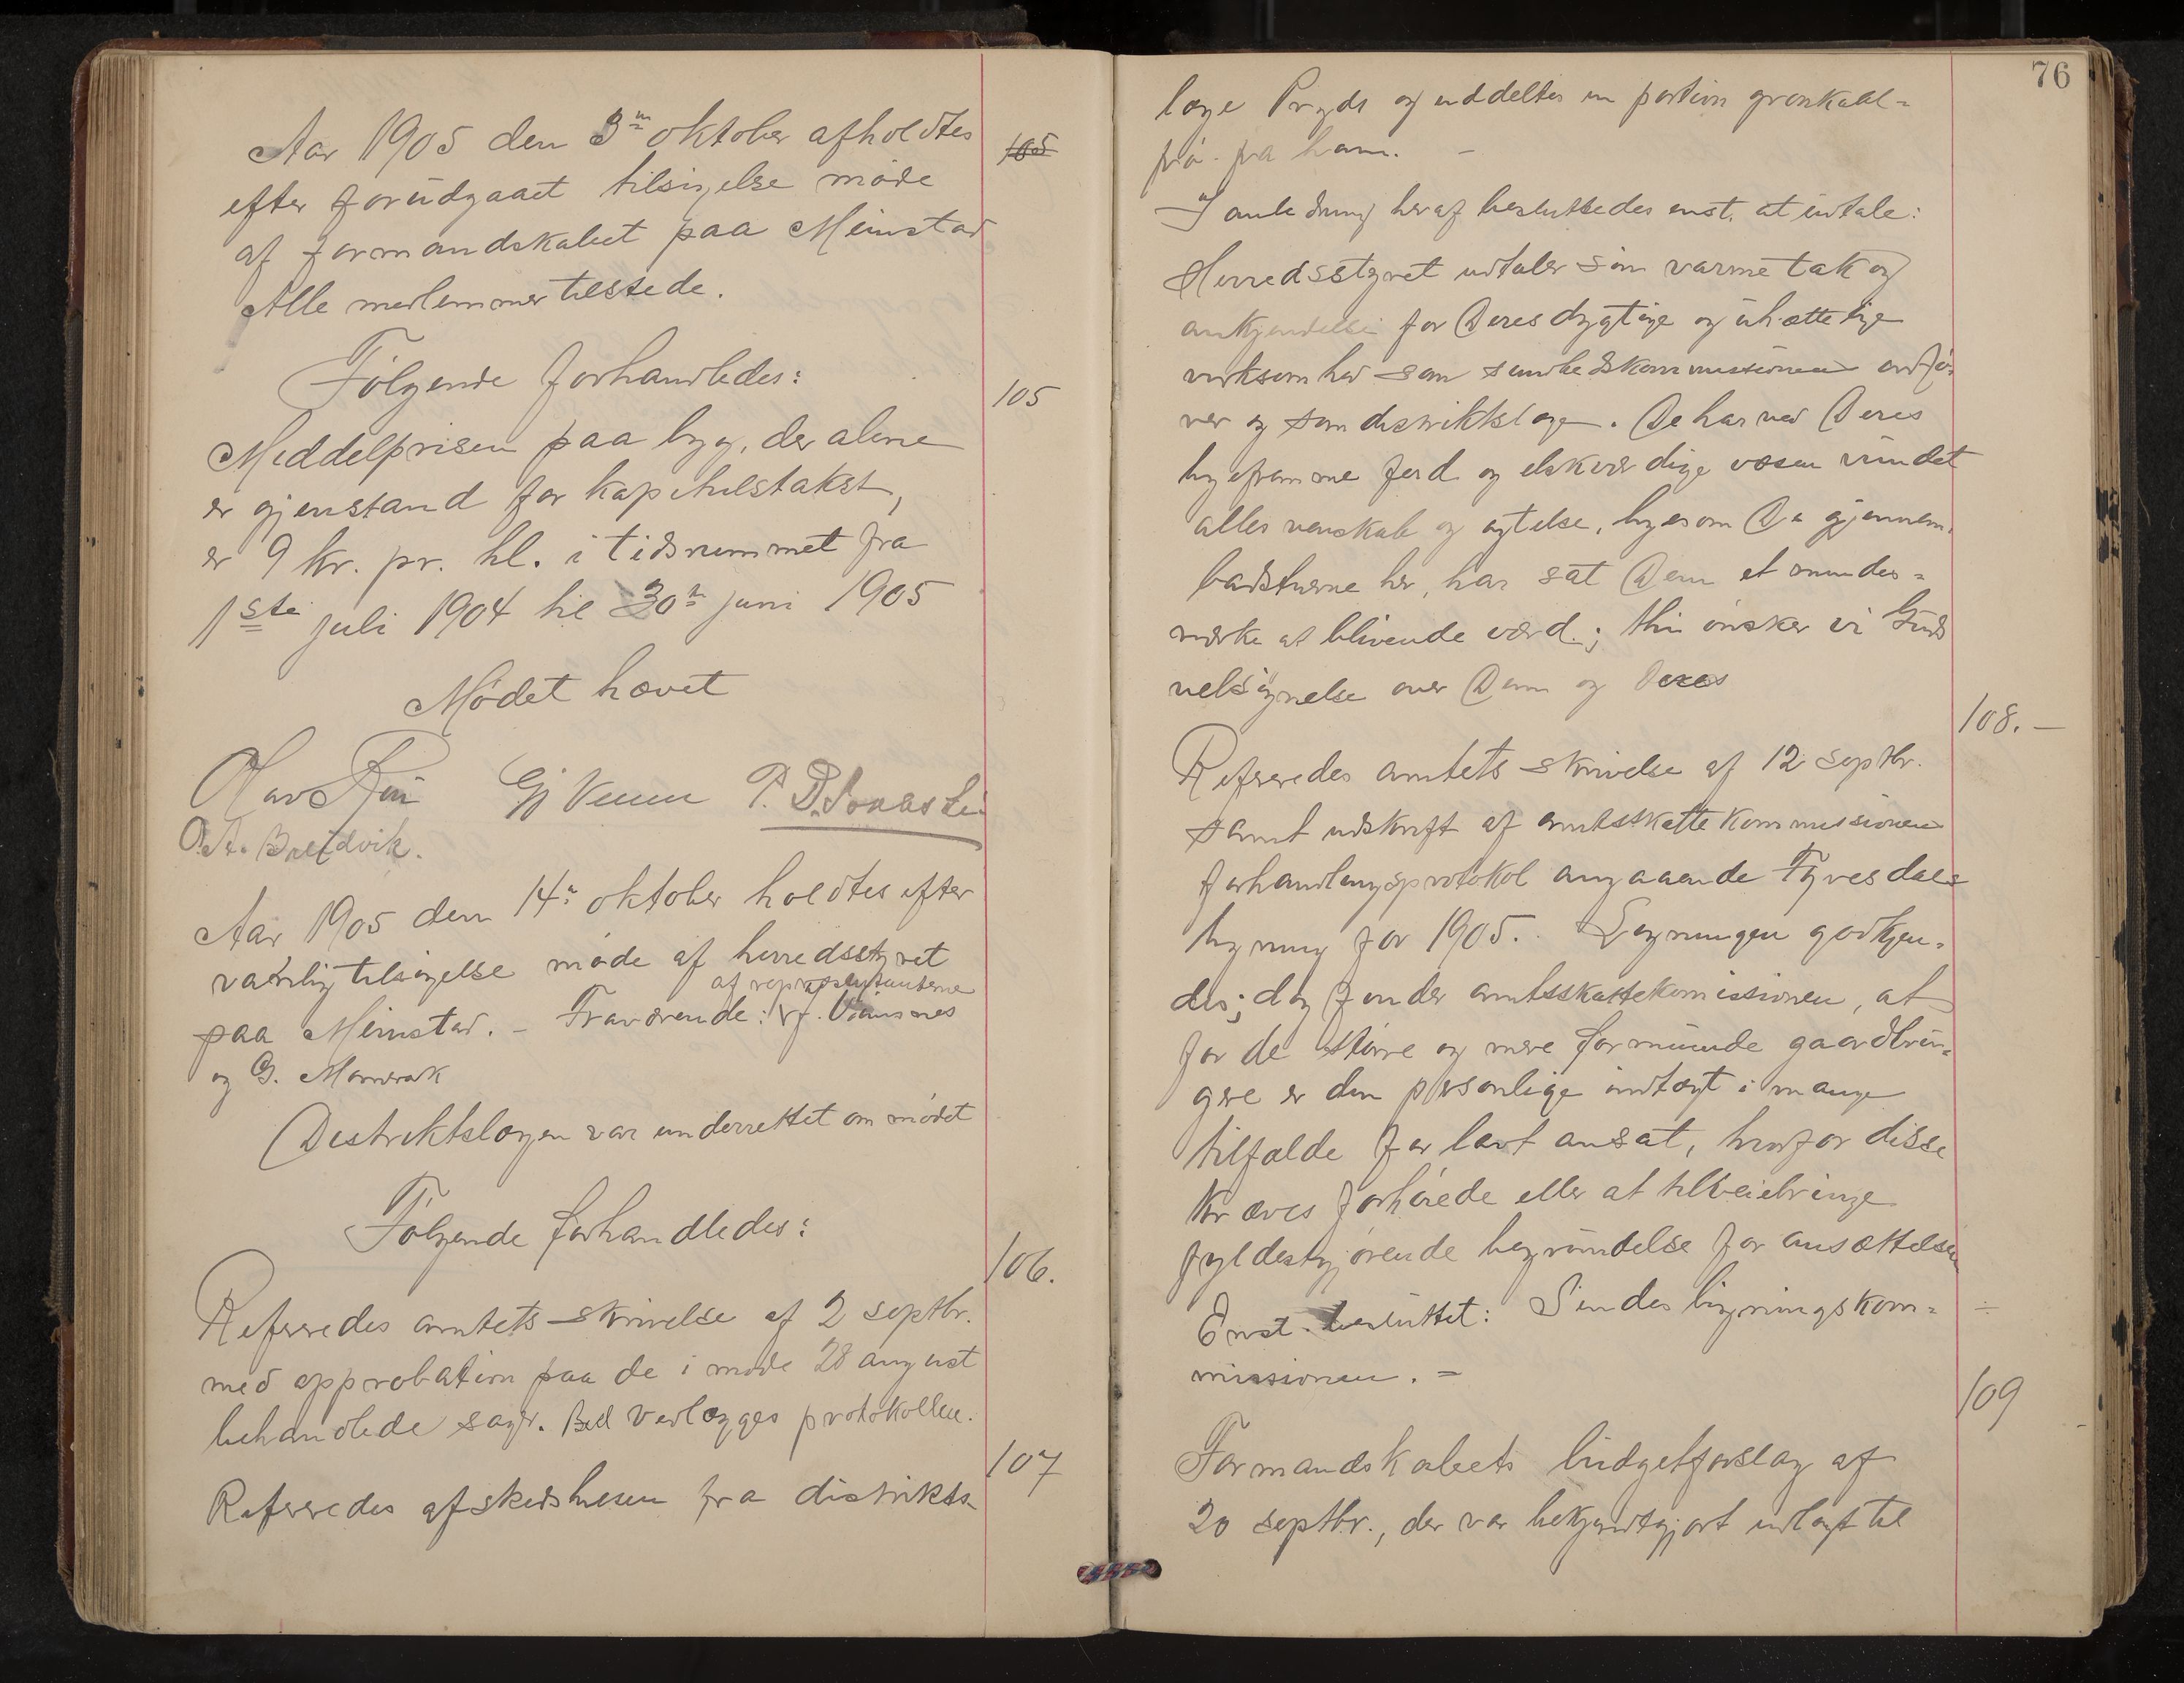 Aar 1905 den 3die oktober afholdtes
105
efter forudgaaet tilsigelse møde
af formandskabet paa Meinstad
Alle medlemmer tilstede.
Følgende forhandledes:
105
Meddelprisen paa byg, der alene
er gjenstand for kapitelstakst,
er 9 kr. pr. hl. i tidsrummet fra
1ste juli 1904 til 30te juni 1905
Mødet hævet
Olav
O. A. Breidvik.
Aar 1905 den 14de oktober holdtes efter
vanlig tilsigelse møde af herredsstyret
af repræsentanterne
paa Meinstad. - Fraværende:
og G. Momrak
Distriktslægen var underrettet om mødet
Følgende forhandledes:
106.
Refereredes amtets skrivelse af 2 septbr.
med approbation paa de i møde 28 august
behandlede sager. Bed vedlægges protokollen.
107
Refereredes afskedshilsen fra distrikts-
76
læge Pryds og uddeltes en portion grønkaal-
frø fra ham. -
I anledning heraf besluttedes enst. at udtale:
Herredsstyret udtaler sin varme tak og
ankjendelse for Deres dygtige og utrættelige
virksomhed som sundhedskommissionens ordfø-
rer og som distriktslæge. De har ved Deres
ligeframme ferd og elskværdige væsen vundet
alles venskab og agtelse, ligesom De gjennem
badstuerne her, har sat Dem et mindes-
mærke af blivende værd.; thi ønsker vi Guds
velsignelse over Dem og Deres
108. -
Refereredes amtets skrivelse af 12 septbr.
samt udskrift af amtsskattekommissionens
forhandlingsprotokol angaaende Fyresdals
ligning for 1905. Ligningen godkjen-
des; dog finder amtsskattekomissionen, at
for de større og mere formuende gaardbru-
gere er den personlige indtægt i mange
tilfælde for lavt ansat, hvorfor disse
kræves forhøiede eller at tilveiebringe
fyldestgjørende begrundelse for ansættelsen
Enst. besluttet: Sendes ligningskom-
missionen. -
109
Formandskabets budgetforslag af
20 septbr., der var bekjendtgjort udlagt til